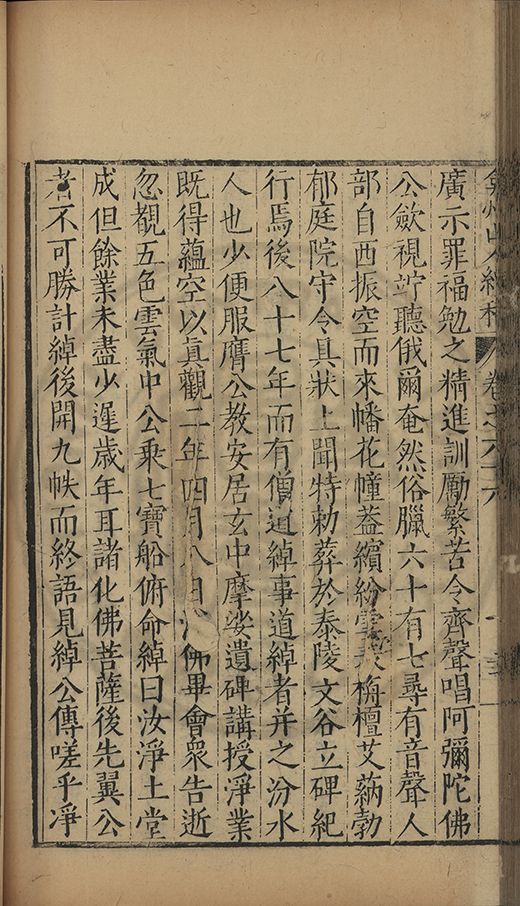 弇州山人續稿 卷之六十六
廣示罪福勉之精進訓勵繁苦令齊聲唱阿彌陀佛
公歛視竚聽俄爾奄然俗臘六十有七尋有音聲人
部自西振空而來幡花幢葢繽紛雲表栴檀艾蒳勃
郁庭院守令具狀上聞特勅葬於泰陵文谷立碑紀
行焉後八十七年而有僧道綽事道綽者并之汾水
人也少便服膺公教安居玄中摩娑遺碑講授淨業
既得蘊空以貞觀二年四月八日 佛畢會衆告逝
忽覩五色雲氣中公乗七寶船俯命綽曰汝淨土堂
成但餘業未盡少遲歳年耳諸化佛菩薩後先翼公
者不可勝計綽後開九帙而終語見綽公傳嗟乎淨